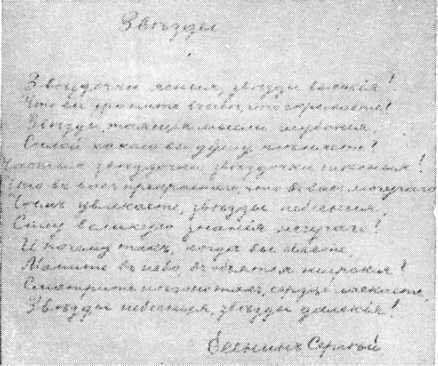 Звѣзды
Звѣздочки ясныя, звѣзды высокія!
Что вы храните въ себѣ, что скрываете!
Звѣзды, таящія мысли глубокія,
Силой какою вы душу плѣняете?
Частыя звѣздочки звѣздочки тѣсныя!
Что въ васъ прекраснаго, что въ васъ могучаго
Чѣмъ увлекаете, звѣзды небесныя,
Силу великую знанія жгучаго!
И почему такъ, когда вы сіяете,
Маните въ небо, въ объятья широкія!
Смотрите нѣжно такъ, сердце ласкаете,
Звѣзды небесныя, звѣзды далекія!
Есенинъ Сергѣй